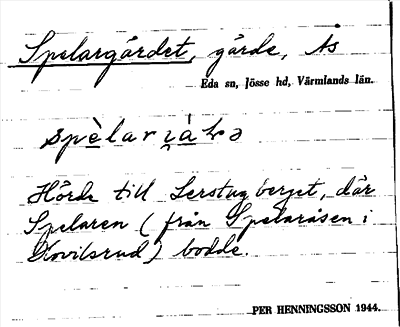 Spelargärdet, gärde, Ås
Eda sn, Jösse hd, Värmlands län.
Hörde till Lerstugberget, där
Spelaren (från Spelaråsen i
Kovilsrud) bodde.
PER HENNINGSSON 1944.